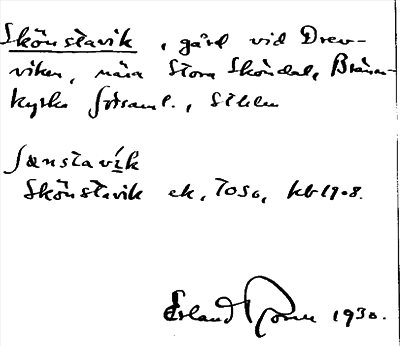 Skönstavik, gård vid Drev-
viken, nära Stora Sköndal, Bränn-
kyrka församl., Sthlm
ʃœnstavik
Skönstavik ek, TOSO, kb 1908.
Erland 1930.